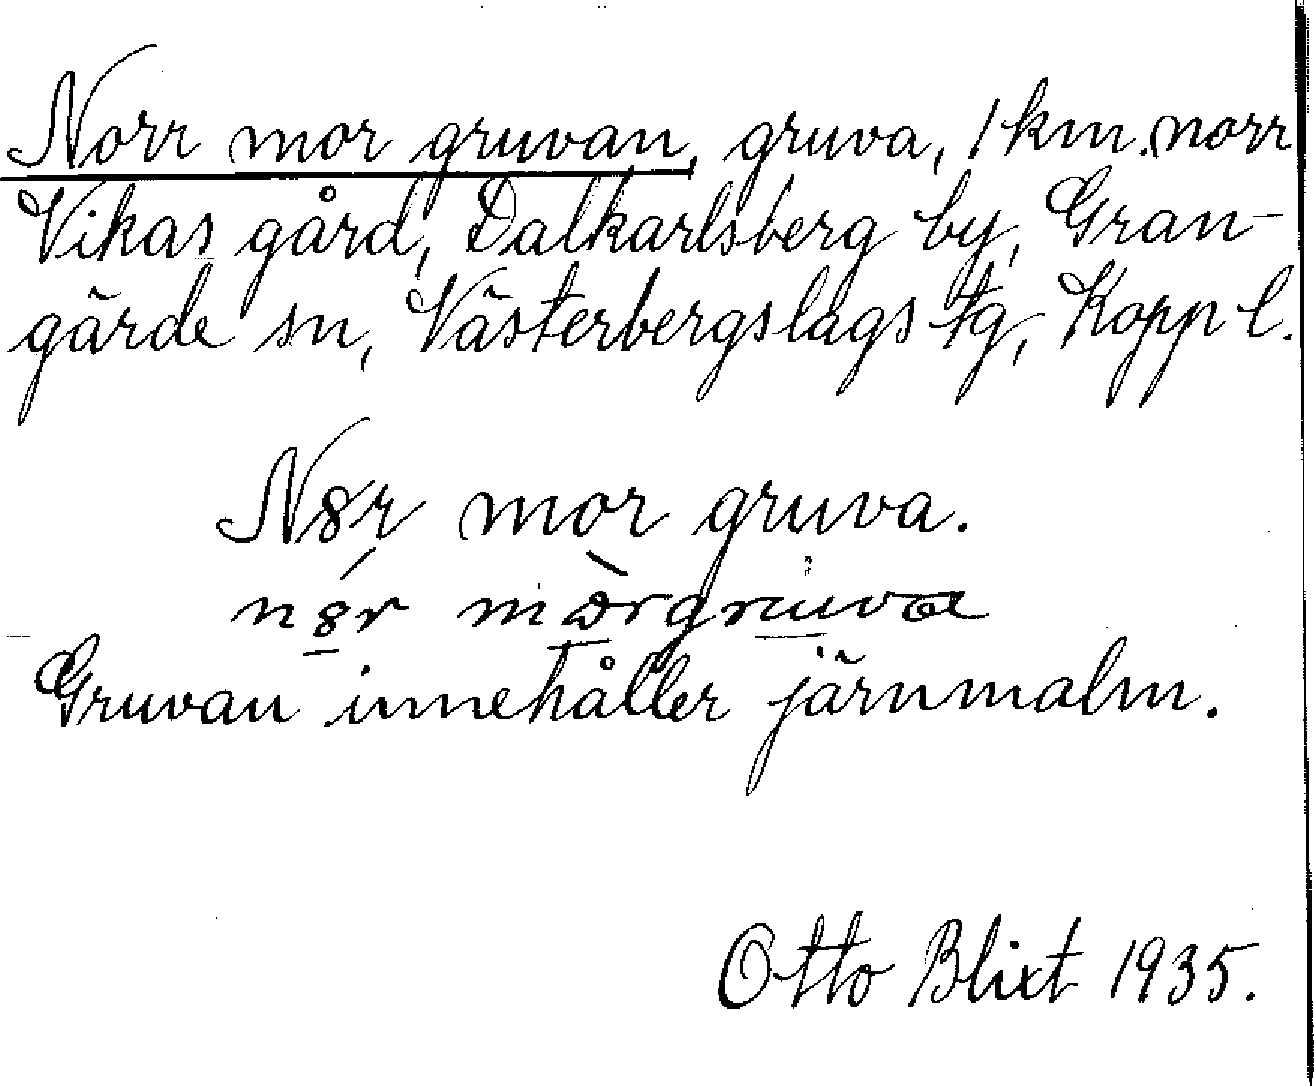 Norr mor gruvan, gruva, 1 km. norr
Vikas gård, Dalkarlsberg by, Gran-
gärde sn, Västerbergslags tg, Kopp l.
N8r mor gruva.
Gruvan innehåller järnmalm.
Otto Blixt 1935.